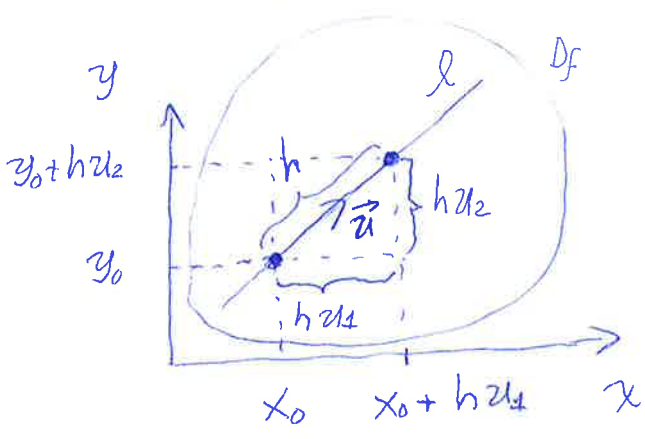 y
l
D_f
y₀+hu₂
h
hu₂
u⃗
y₀
hu₁
x₀
x₀+hu₁
x